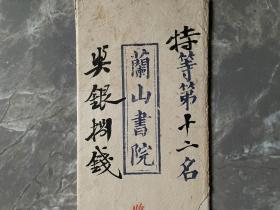 特等第十二名
蘭山書院
奬銀捌錢